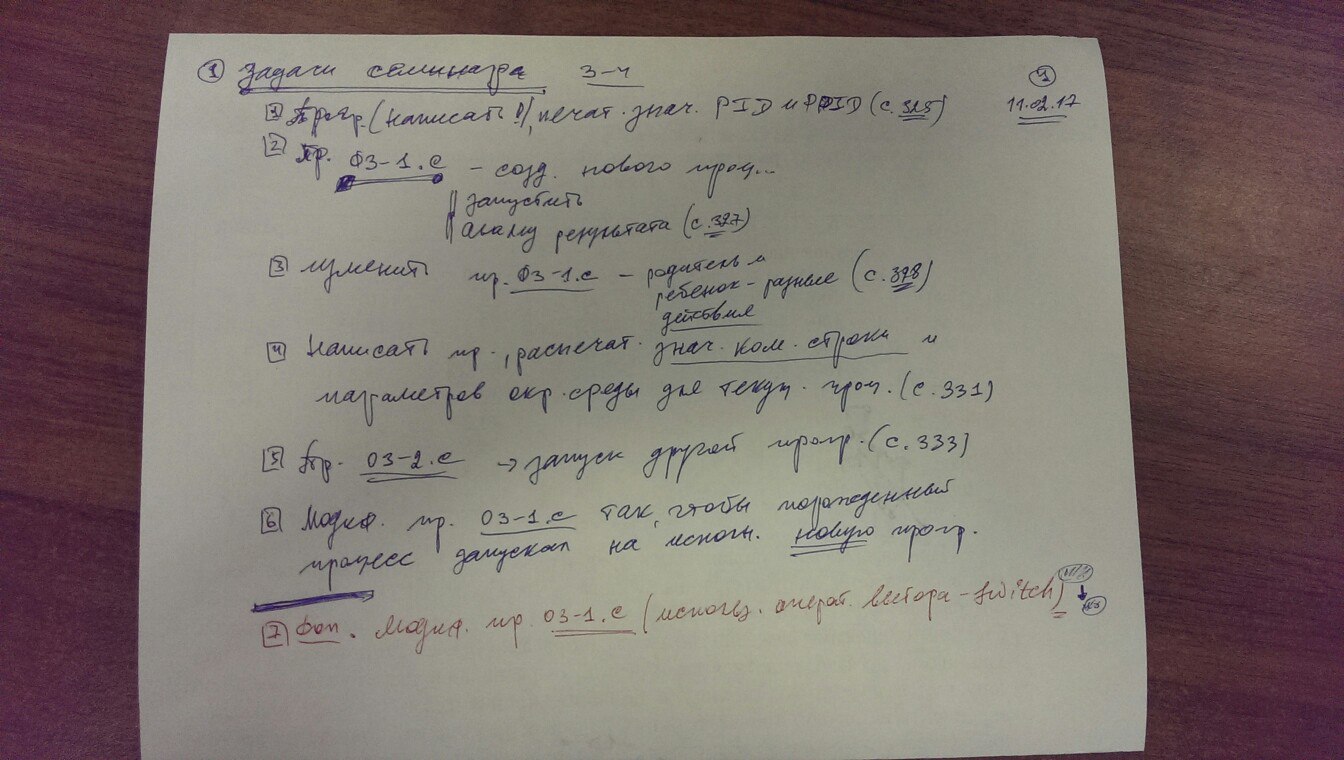 ① Задачи семинара 3-4
④
11.02.17
1 Прогр. (написать!), печат. знач. PID и PPID (с. 325)
2 Пр. 03-1.c - созд. нового проц...
запустить
анализ результата (с. 327)
3 Изменить пр. 03-1.c - родитель и
ребенок - разные (с. 328)
действия
4 Написать пр., распечат. знач. ком. строки и
параметров окр. среды для текущ. проц. (с. 331)
5 Пр. 03-2.c → запуск другой прогр. (с. 333)
6 Модиф. пр. 03-1.c так, чтобы порожденный
процесс запускал на исполн. новую прогр.
7 Доп. Модиф. пр. 03-1.c (использ. операт. выбора - switch)